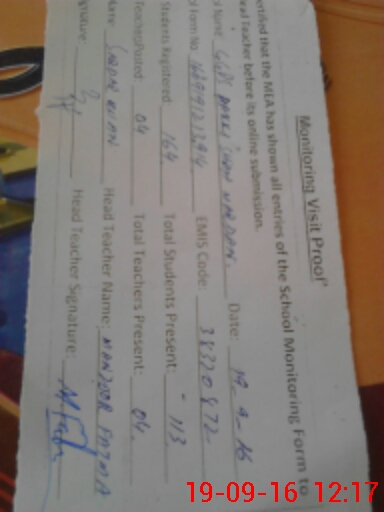 Monitoring Visit Proof
ertified that the MEA has shown all entries of the School Monitoring Form to
ead Teacher before its online submission.
Name: GGPS Date: 19-9-16
Form No. EMIS Code: 38320872
Students Registered: 164 Total Students Present: - 113
Teachers Posted: 04 Total Teachers Present: 04.
Name: Head Teacher Name: MANZOOR FATMA
gnature: Head Teacher Signature:
19-09-16 12:17